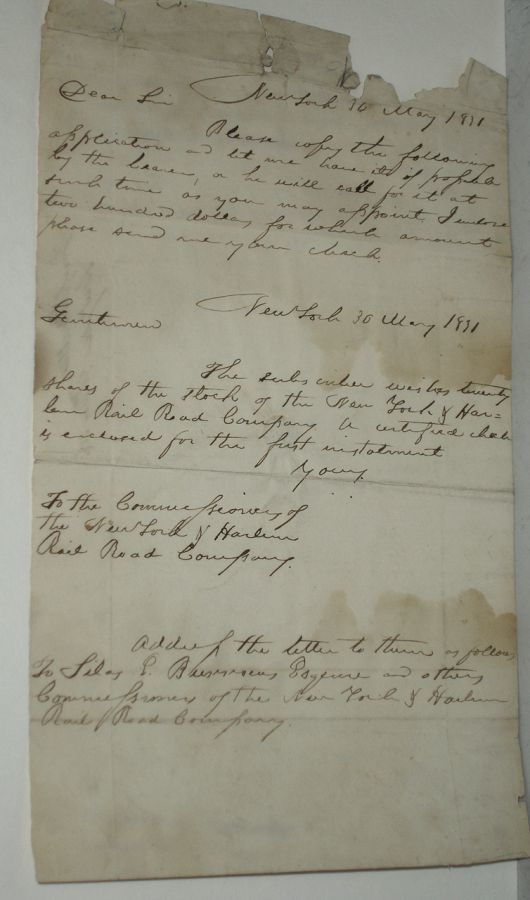 Dear Sir New York 30 May 1831
Please copy the following
application and let me have it if possible
by the bearer, or he will call for it at
such time as you may appoint. I enclose
two hundred dollars for which amount
please send me your check.
New York 30 May 1831
Gentlemen
The subscriber wishes twenty
shares of the stock of the New York & Har=
lem Rail Road Company A certified check
is enclosed for the first instalment
Yours
To the Commissioners of
the New York & Harlem
Rail Road Company.
Address the letter to them as follows
To Silas E. Esquire and others
Commissioners of the New York & Harlem
Rail Road Company.